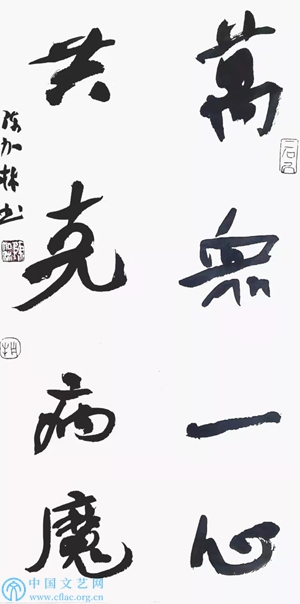 萬眾一心
共克病魔
陈加林书
中国文艺网
www.cflac.org.cn